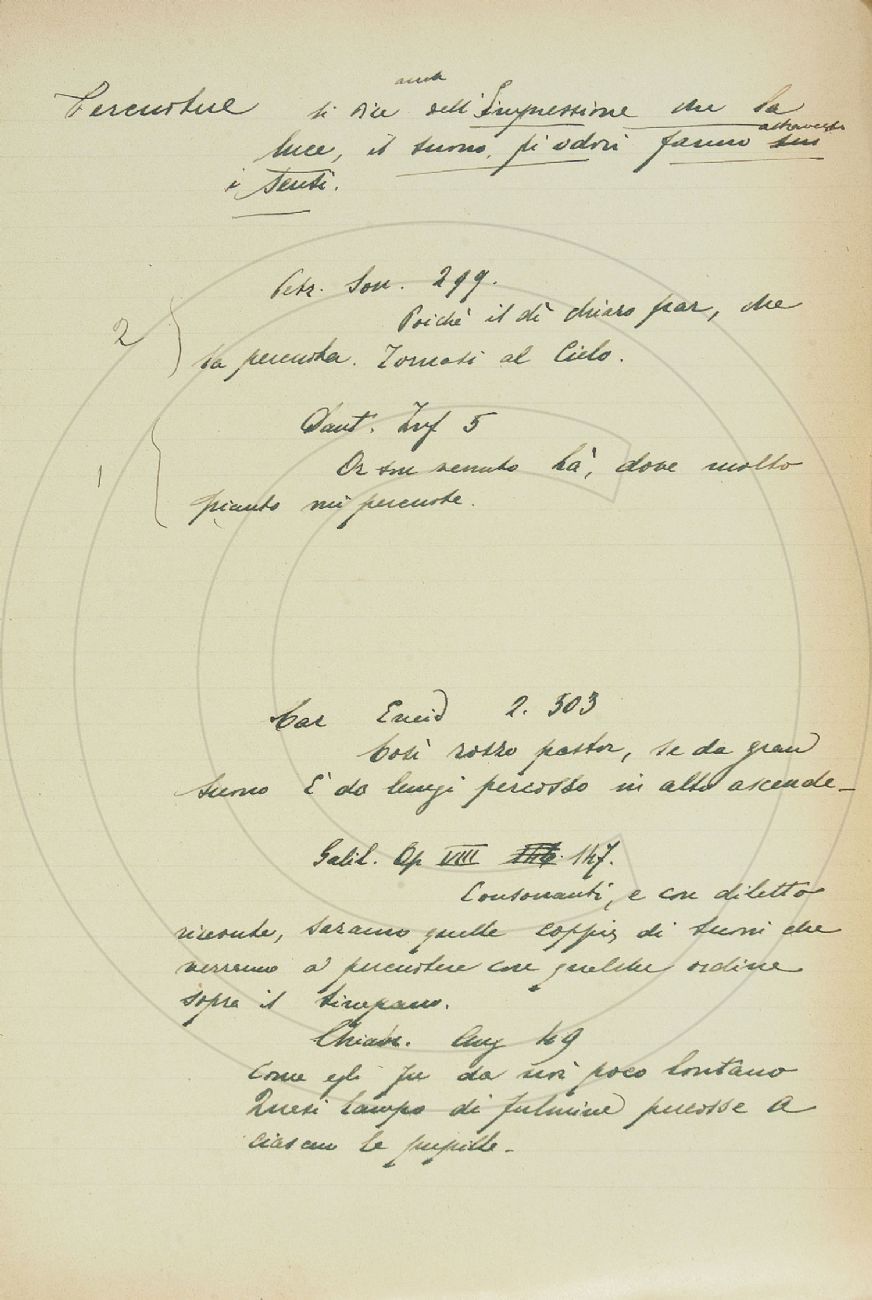 anche
Percuotere si dice dell'Impressione che la
attraverso
luce, il suono, gli odori fanno sui
i sensi.
Petr. Son. 299.
Poichè il dì chiaro par, che
2
la percuota. Tornasi al Cielo.
Dant. Inf 5
1
Or son venuto Là, dove molto
pianto mi percuote.
Car Eneid 2. 503
Così rozzo pastor, se da gran
suono È da lungi percosso in alto ascende_
Galil. Op VIII 147.
Consonanti, e con diletto
ricevute, saranno quelle coppie di suoni che
verranno a percuotere con qualche ordine
sopra il timpano.
Chiabr. 49
Come egli fu da noi poco lontano
Quasi lampo di fulmine percosse A
ciascun le pupille.